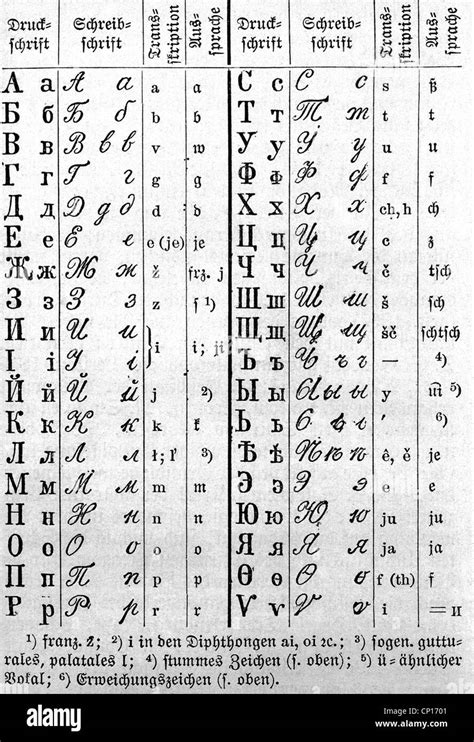 Druck-ſchrift Schreib-ſchrift Trans-ſkription Aus-ſprache Druck-ſchrift Schreib-ſchrift Trans-ſkription Aus-ſprache
А а А а a a С с С с s ß
Б б Б б b b Т т Т т t t
В в В в в v w У у У у u u
Г г Г г g g Ф ф Ф ф f f
Д д Д д д d d Х х Х х ch, h ch
Е е Е е e (je) je Ц ц Ц ц c z
Ж ж Ж ж ž frz. j Ч ч Ч ч č tſch
З з З з z ſ ¹) Ш ш Ш ш š ſch
И и И и i i; ji Щ щ Щ щ šč ſchtſch
І і І і Ъ ъ Ъ ъ ъ — ⁴)
Й й Й й j ²) Ы ы Ы ы ы y ⁵)
К к К к k k Ь ь Ь ь ь ⁶)
Л л Л л ł; l' ³) Ѣ ѣ Ѣ ѣ ê, ě je
М м М м m m Э э Э э e e
Н н Н н n n Ю ю Ю ю ju ju
О о О о o o Я я Я я ja ja
П п П п p p Ѳ ѳ Ѳ ѳ f (th) f
Р р Р р r r Ѵ ѵ Ѵ ѵ i = и
¹) franz. Z; ²) i in den Diphthongen ai, oi ꝛc.; ³) ſogen. guttu-
rales, palatales l; ⁴) ſtummes Zeichen (ſ. oben); ⁵) ü-ähnlicher
Vokal; ⁶) Erweichungszeichen (ſ. oben).
alamy
Image ID: CP1701
www.alamy.com